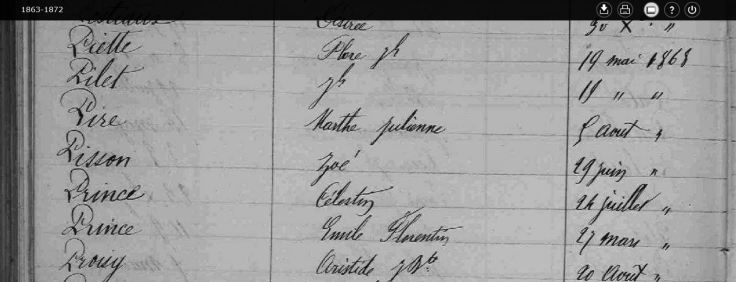 1863-1872
Désirée 30 X " "
Piette Flore jh 19 mai 1868
Pilet jh 19 " "
Pire Marthe Julienne 5 Aout "
Pisson Zoé 29 juin "
Prince Célestin 26 juillet "
Prince Emile Florentin 27 mars "
Prouy Aristide J Bte 20 Aout "